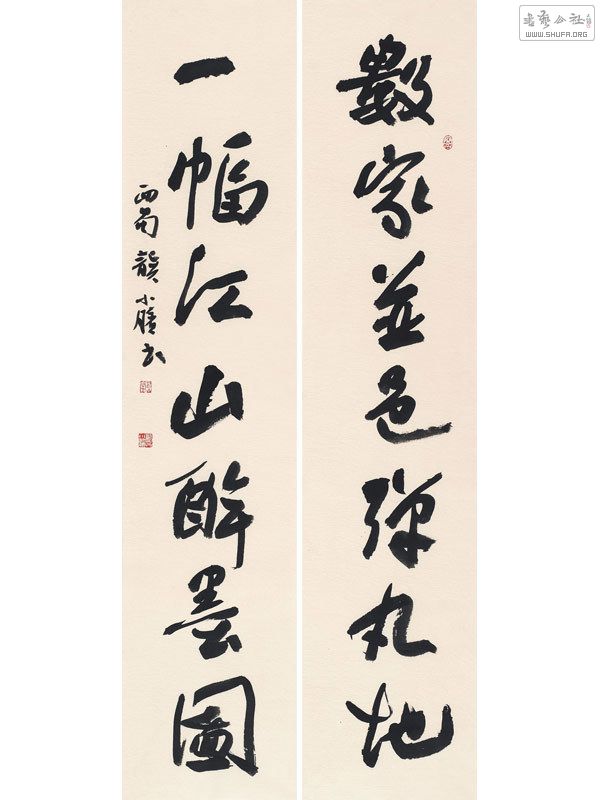 書藝公社
WWW.SHUFA.ORG
數家並邑彈丸地
一幅江山醉墨圖
西蜀龔小書